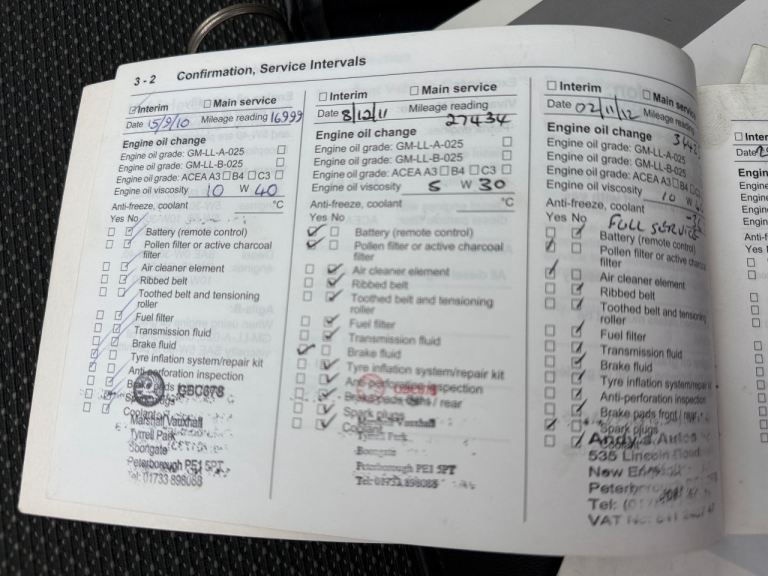 3 - 2 Confirmation, Service Intervals
Interim Main service
Date 15/9/10 Mileage reading 16999
Engine oil change
Engine oil grade: GM-LL-A-025
Engine oil grade: GM-LL-B-025
Engine oil grade: ACEA A3 B4 C3
Engine oil viscosity 10 W 40
Anti-freeze, coolant °C
Yes No
Battery (remote control)
Pollen filter or active charcoal
filter
Air cleaner element
Ribbed belt
Toothed belt and tensioning
roller
Fuel filter
Transmission fluid
Brake fluid
Tyre inflation system/repair kit
Anti-perforation inspection
GBC678
Coolant
Marshall Vauxhall
Tyrrell Park
Boongate
Peterborough PE1 5PT
Tel: 01733 898088
Interim Main service
Date 8/12/11 Mileage reading
27434
Engine oil change
Engine oil grade: GM-LL-A-025
Engine oil grade: GM-LL-B-025
Engine oil grade: ACEA A3 B4 C3
Engine oil viscosity 5 W 30
Anti-freeze, coolant °C
Yes No
Battery (remote control)
Pollen filter or active charcoal
filter
Air cleaner element
Ribbed belt
Toothed belt and tensioning
roller
Fuel filter
Transmission fluid
Brake fluid
Tyre inflation system/repair kit
inspection
/ rear
Spark plugs
Coolant
Marshall Vauxhall
Tyrrell Park
Boongate
Peterborough PE1 5PT
Tel: 01733 898088
Interim Main service
Date 02/11/12 Mileage reading
Engine oil change
Engine oil grade: GM-LL-A-025
Engine oil grade: GM-LL-B-025
Engine oil grade: ACEA A3 B4
Engine oil viscosity 10 W
Anti-freeze, coolant
Yes No FULL SERVICE
Battery (remote control)
Pollen filter or active charcoal
filter
Air cleaner element
Ribbed belt
Toothed belt and tensioning
roller
Fuel filter
Transmission fluid
Brake fluid
Tyre inflation system/repair kit
Anti-perforation inspection
Brake pads front / rear
Spark plugs
Andy's Autos
535 Lincoln Road
New
Tel:
VAT
Date